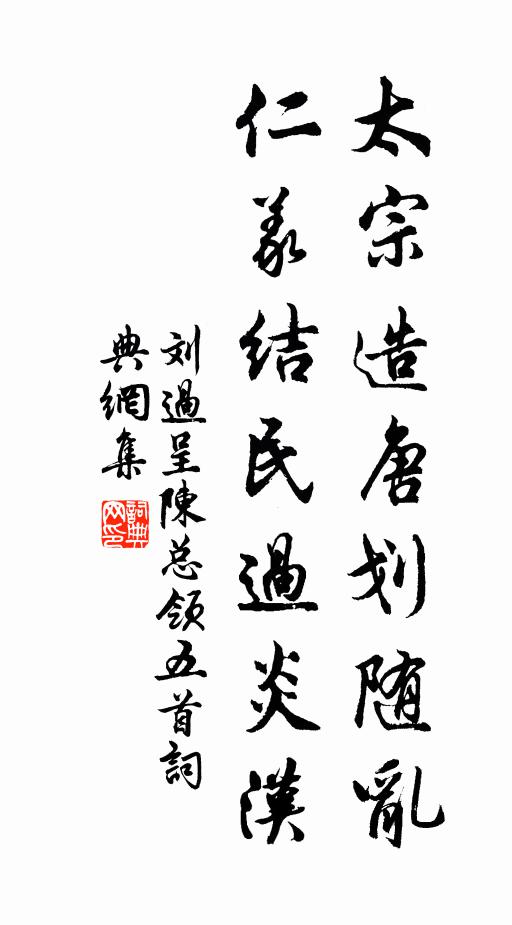 太宗造唐划随亂
仁義结民過炎漢
刘過呈陳总领五首詞
典網集
詞典
网印